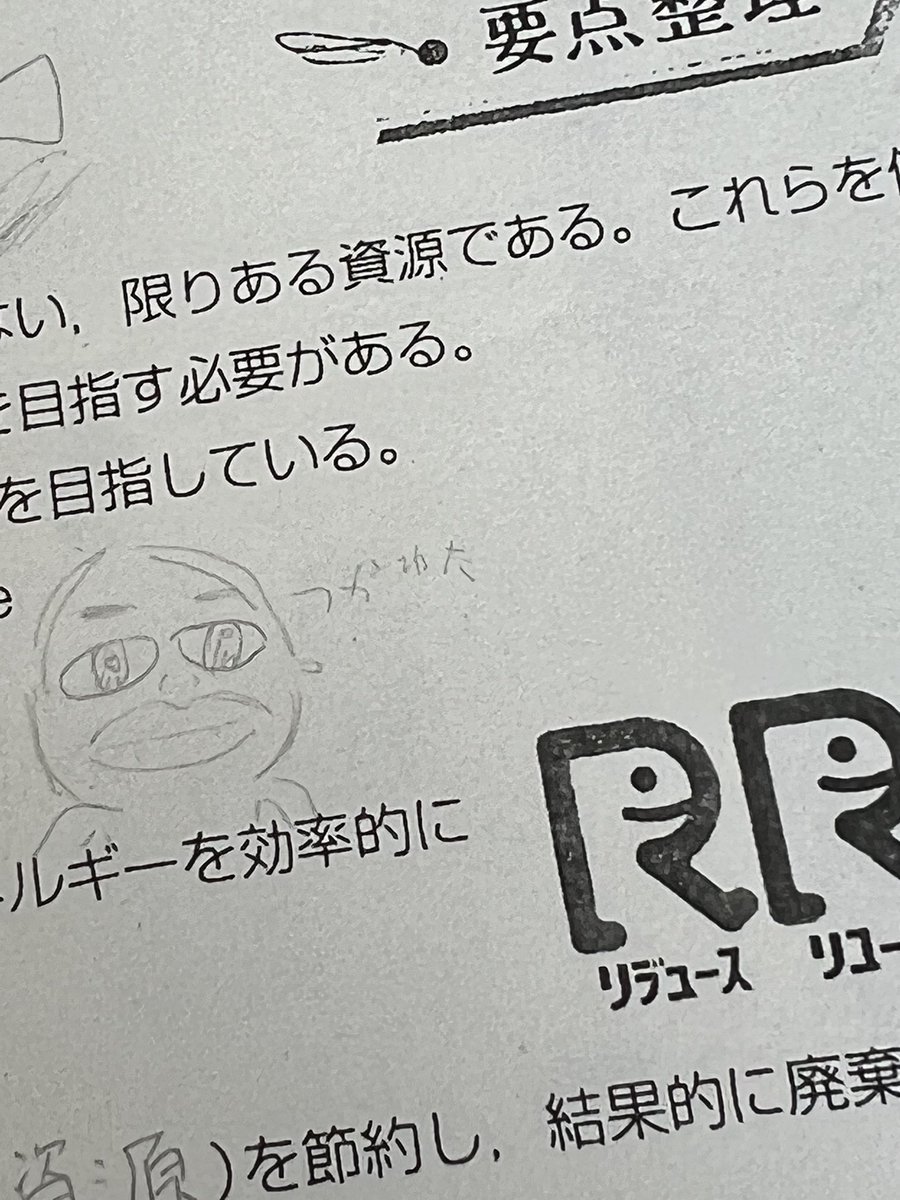 要点整理
ない，限りある資源である。これらを
を目指す必要がある。
を目指している。
e
つかれた
ネルギーを効率的に
RR
リデュース リユー
資源)を節約し，結果的に廃棄